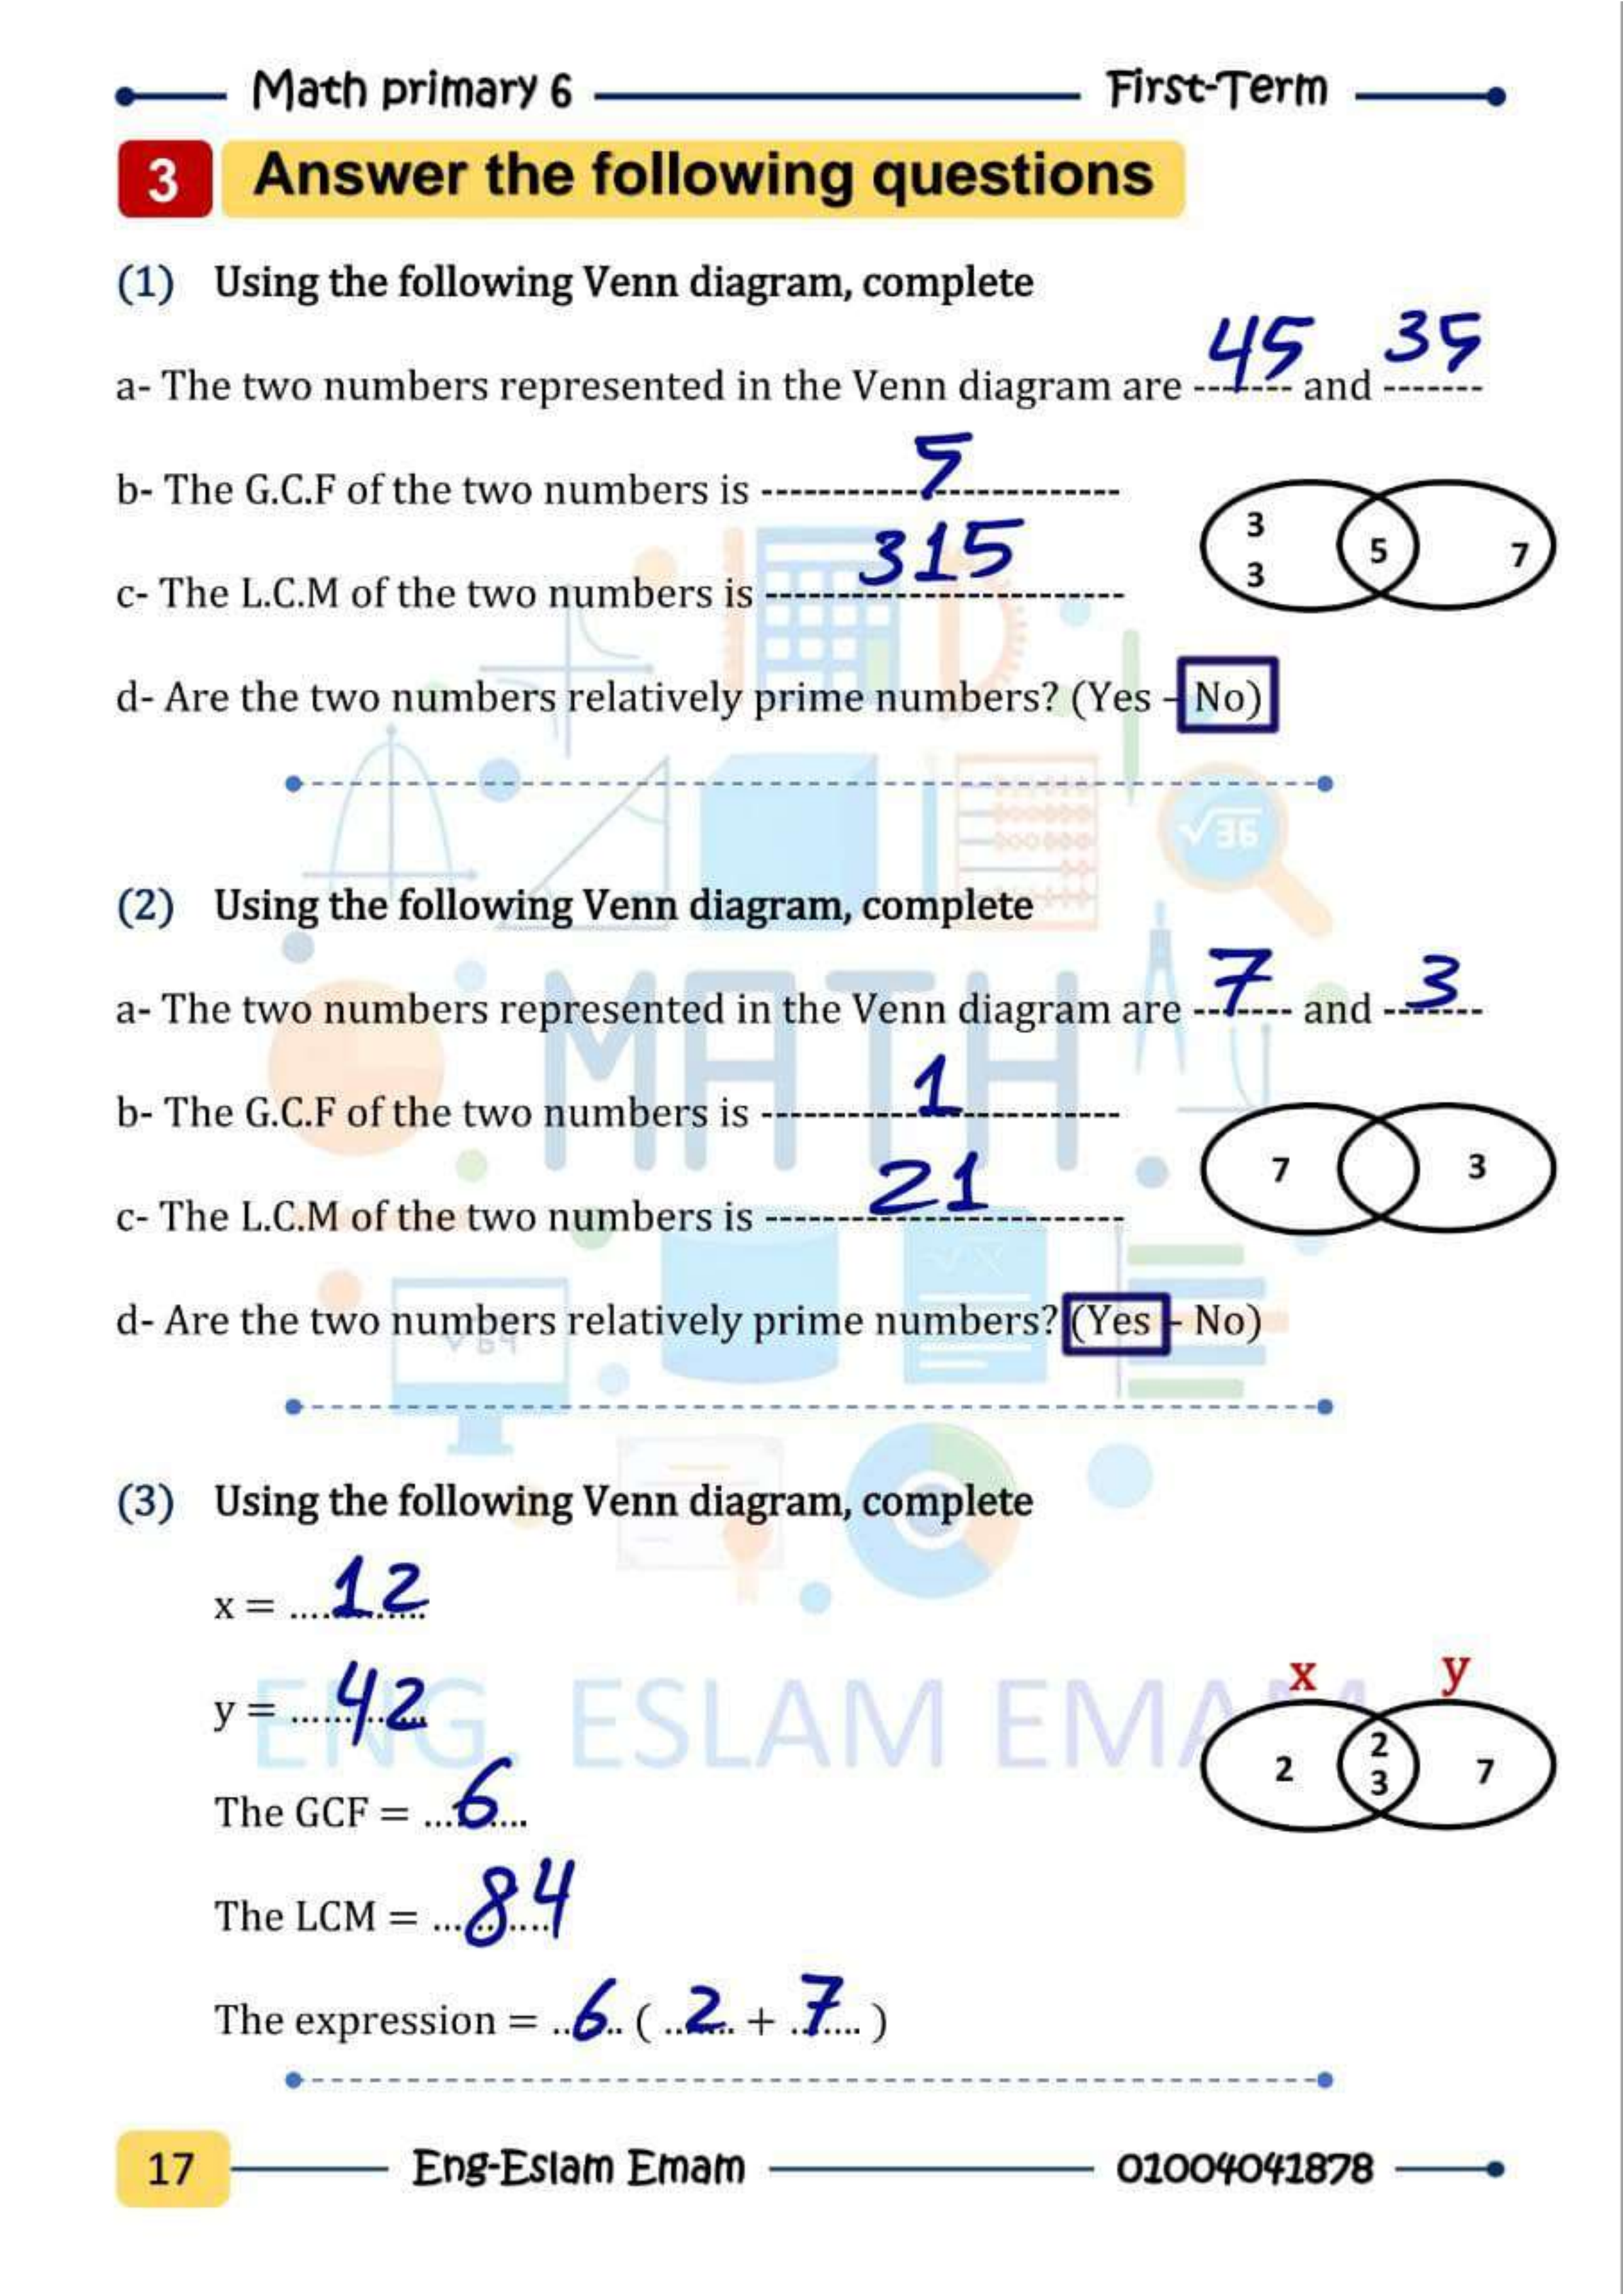 Math primary 6 First-Term
3 Answer the following questions
(1) Using the following Venn diagram, complete
a- The two numbers represented in the Venn diagram are 45 and 35
b- The G.C.F of the two numbers is 5
3 5 7
3
c- The L.C.M of the two numbers is 315
d- Are the two numbers relatively prime numbers? (Yes - No)
√36
(2) Using the following Venn diagram, complete
MATH
a- The two numbers represented in the Venn diagram are 7 and 3
b- The G.C.F of the two numbers is 1
7 3
c- The L.C.M of the two numbers is 21
√X
d- Are the two numbers relatively prime numbers? (Yes - No)
√64
(3) Using the following Venn diagram, complete
x = 12
y = 42
ENG. ESLAM EMAM
x y
2 2 3 7
The GCF = 6
The LCM = 84
The expression = 6 ( 2 + 7 )
17 Eng-Eslam Emam 01004041878